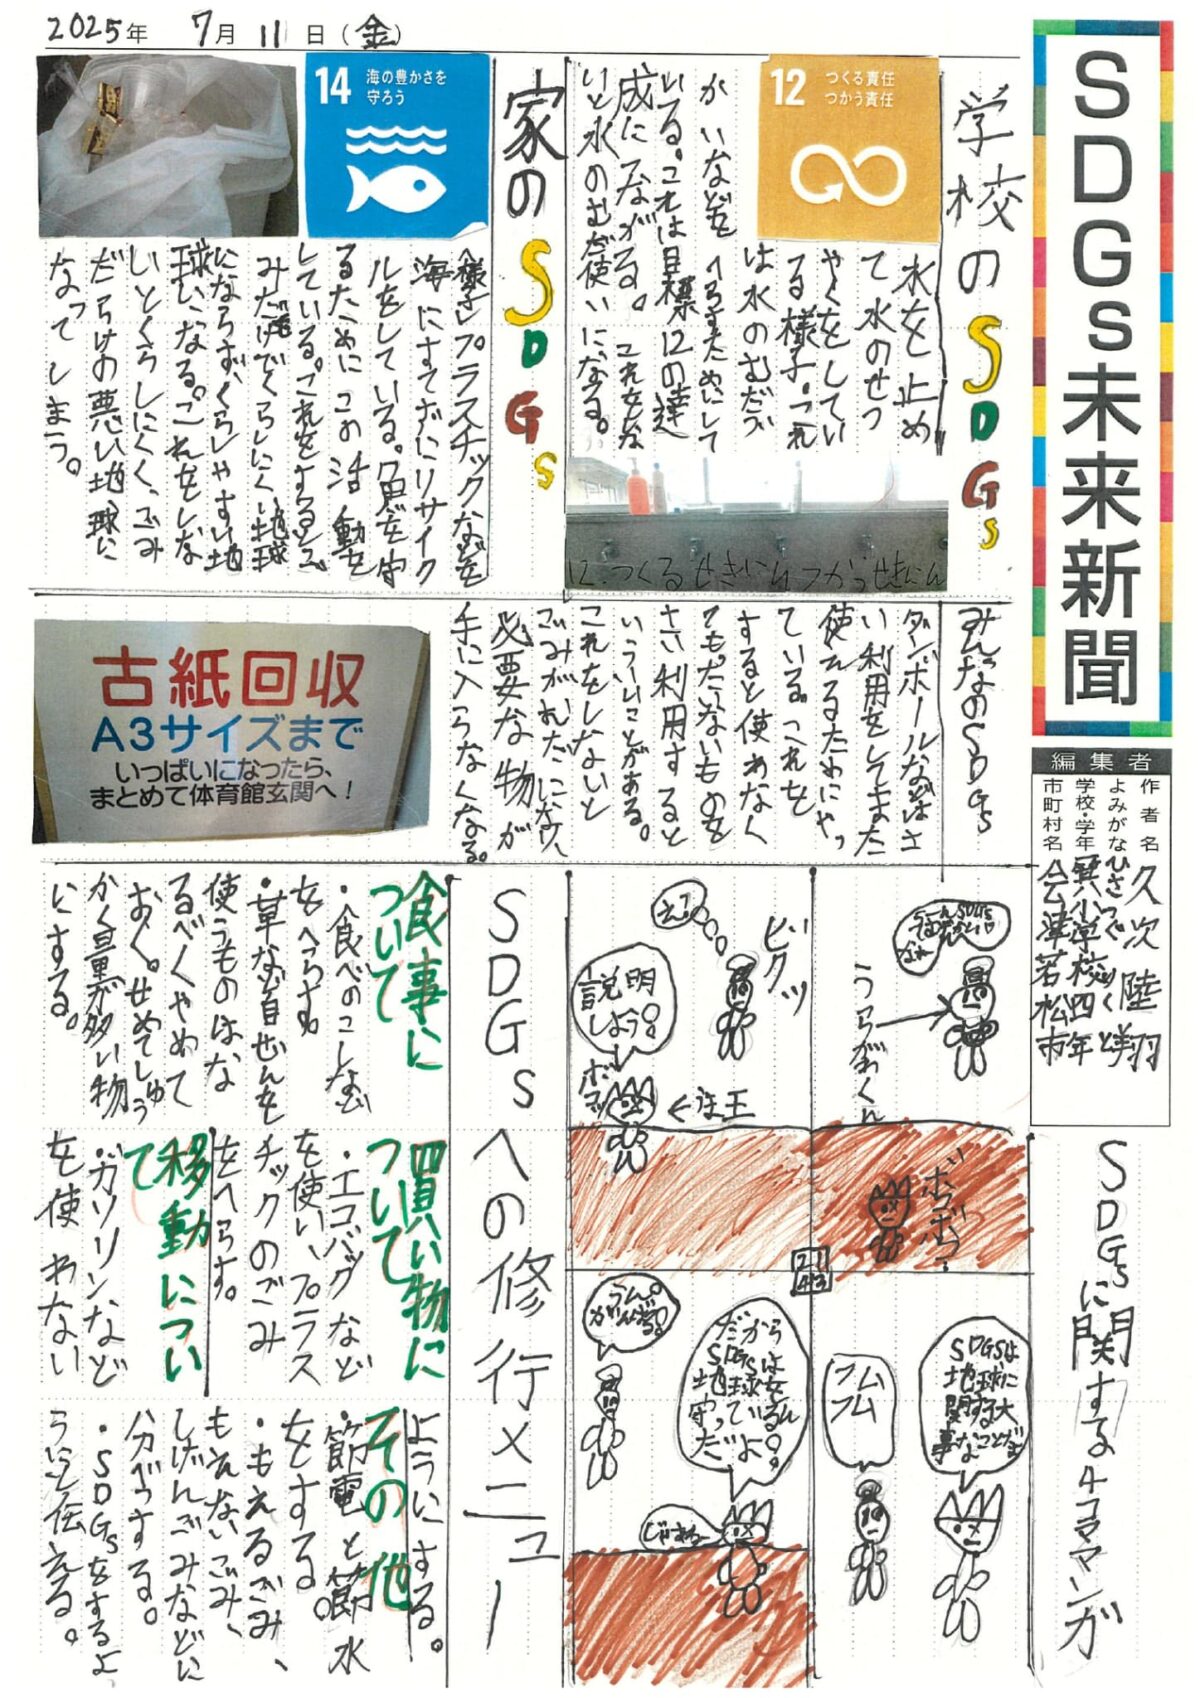 2025年 7月 11日(金)
SDGs未来新聞
編集者
作者名 久次 陸翔
よみがな ひさつぐ りくと
学校・学年 小学校四年
市町村名 会津若松市
学校のSDGs
12 つくる責任
つかう責任
水を止め
て水のせつ
やくをしてい
る様子。これ
は水のむだづ
かいなどを
へらすためにして
いる。これは目標12の達
成につながる。これをしな
いと水のむだ使いになる。
12.つくるせきにんつかうせきにん
家のSDGs
14 海の豊かさを
守ろう
様子 プラスチックなどを
海にすてずにリサイク
ルをしている。魚を守
るためにこの活動を
している。これをするとご
みだけでくらしにくい地球
にならず、くらしやすい地
球になる。これをしな
いとくらしにくく、ごみ
だらけの悪い地球に
なってしまう。
みんなのSDGs
ダンボールなどはさ
い利用をしてまた
使えるためにやっ
ている。これを
すると使わなく
ても。だらないものを
さい利用すると
いういいことがある。
これをしないと
ごみがふえだになり、
必要な物が
手に入らなくなる。
古紙回収
A3サイズまで
いっぱいになったら、
まとめて体育館玄関へ！
SDGsに関する4コママンガ
うらがわくん
ボコボコ
2 1
4 3
ビクッ
えっ
説明
しよう。
ボコッ
←注王
SDGsは
地球に
関する大
事なことだ
フム
フム
だから
SDGsは
地球を
守っているんだよ。
うん。
がんばる。
じゃあね～
SDGsへの修行メニュー
食事に
ついて
・食べのこしなど
をへらす。
・草など自ぜんを
使うものはな
るべくやめて
おく。せめてしゅう
かく量が多い物
にする。
買い物に
ついて
・エコバッグなど
を使い、プラス
チックのごみ
をへらす。
移動につい
て
・ガソリンなど
を使わない
ようにする。
その他
・節電と節水
をする。
・もえるごみ、
もえないごみ、
しげんごみなどに
分べつする。
・SDGsをするよ
うにと伝える。